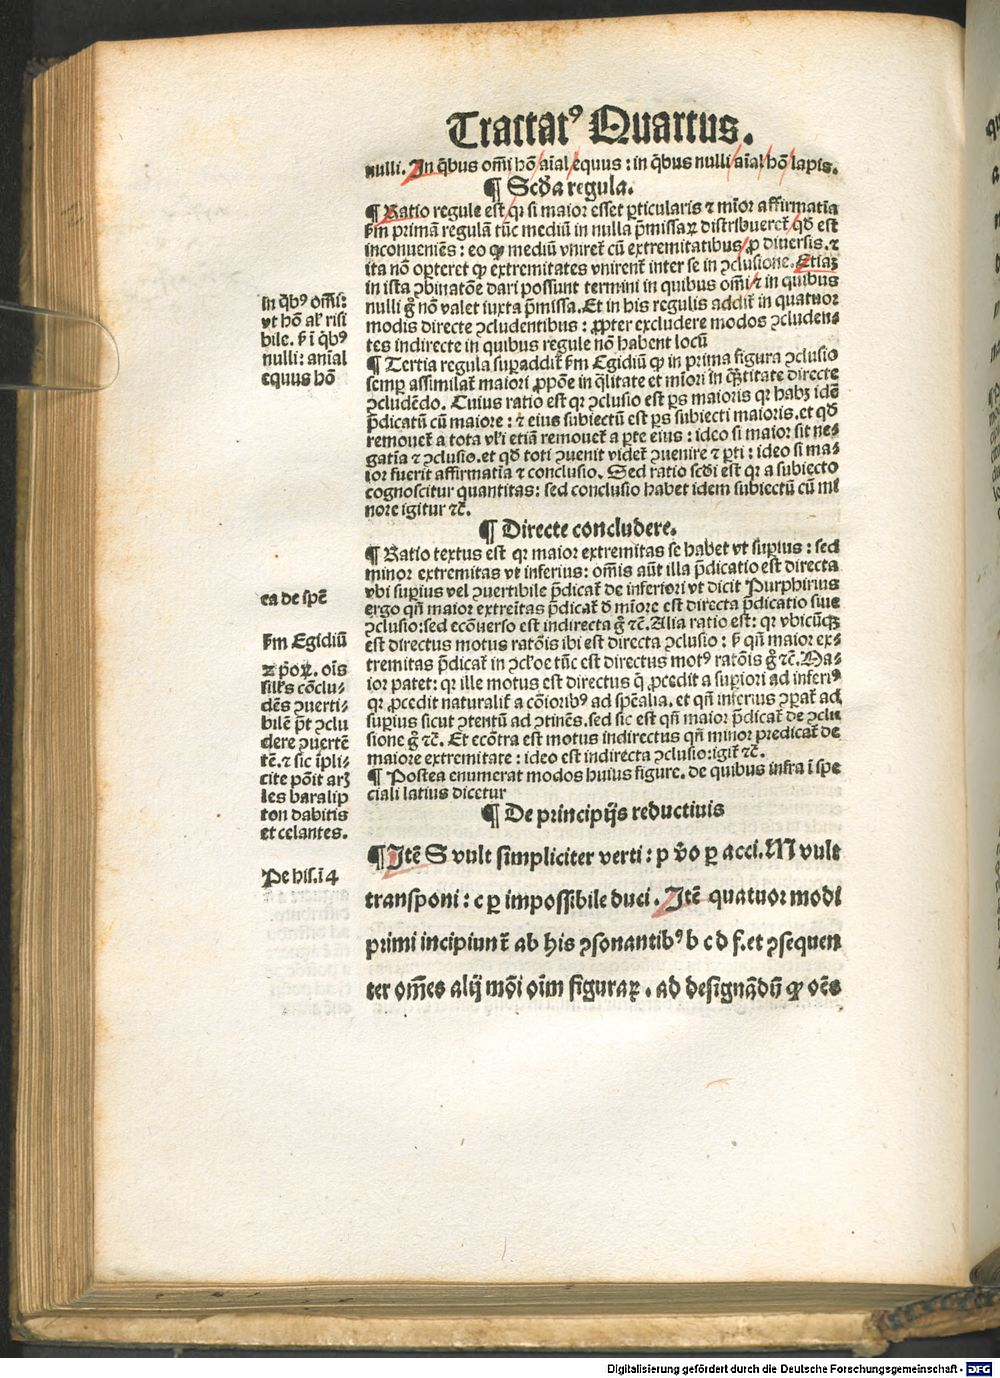 Tractatꝰ Quartus.
nulli. In q̄bus om̄i hō aīal equus : in q̄bus nulli aīal hō lapis.
¶ Scd̄a regula.
¶ Ratio regule est qꝛ si maior esset ꝑticularis ⁊ mīor affirmatīa
ẜm primā regulā tūc mediū in nulla p̄missaꝝ distribueret̄ qd̄ est
inconueniēs : eo ꝙ mediū vniret̄ cū extremitatibus ꝓ diuersis. ⁊
ita nō oꝑteret ꝙ extremitates vnirent̄ inter se in ꝯclusione. Etiaꝫ
in ista ꝯbinatōe dari possunt termini in quibus om̄i ⁊ in quibus
nulli g̊ nō valet iuxta p̄missa. Et in his regulis addit̄ in quatuor
modis directe ꝯcludentibus : ꝓpter excludere modos ꝯcluden-
tes indirecte in quibus regule nō habent locū
¶ Tertia regula suꝑaddit̄ ẜm Egidiū ꝙ in prima figura ꝯclusio
semꝑ assimilat̄ maiori ꝓpōe in q̄litate et mīori in q̄ꝫtitate directe
ꝯcludēdo. Cuius ratio est qꝛ ꝯclusio est ꝑs maioris qꝛ habꝫ idē
p̄dicatū cū maiore : ⁊ eius subiectū est ꝑs subiecti maioris. et qd̄
remouet̄ a tota vl̄i etiā remouet̄ a ꝑte eius : ideo si maior sit ne-
gatīa ⁊ ꝯclusio. et qd̄ toti ꝯuenit videt̄ ꝯuenire ⁊ ꝑti : ideo si ma-
ior fuerit affirmatīa ⁊ conclusio. Sed ratio scd̄i est qꝛ a subiecto
cognoscitur quantitas : sed conclusio habet idem subiectū cū mi
nore igitur ⁊c̄.
¶ Directe concludere.
¶ Ratio textus est qꝛ maior extremitas se habet vt suꝑius : sed
minor extremitas vt inferius : om̄is aūt illa p̄dicatio est directa
vbi suꝑius vel ꝯuertibile p̄dicat̄ de inferiori vt dicit Purphirius
ergo qn̄ maior extreītas p̄dicat̄ d̄ mīore est directa p̄dicatio siue
ꝯclusio : sed ecōuerso est indirecta g̊ ⁊c̄. Alia ratio est : qꝛ vbicūqꝫ
est directus motus ratōis ibi est directa ꝯclusio : ẜ qn̄ maior ex-
tremitas p̄dicat̄ in ꝯcl̄oe tūc est directus motꝰ ratōis g̊ ⁊c̄. Ma-
ior patet : qꝛ ille motus est directus q̄ ꝓcedit a suꝑiori ad inferiꝰ
qꝛ ꝓcedit naturalit̄ a cōioribꝰ ad spēalia. et qn̄ inferius ꝯꝑat̄ ad
suꝑius sicut ꝯtentū ad ꝯtinēs. sed sic est qn̄ maior p̄dicat̄ de ꝯclu
sione g̊ ⁊c̄. Et ecōtra est motus indirectus qn̄ minor predicat̄ de
maiore extremitate : ideo est indirecta ꝯclusio : igit̄ ⁊c̄.
¶ Postea enumerat modos huius figure. de quibus infra ī spe
ciali latius dicetur
¶ De principijs reductiuis
¶ Itē S vult simpliciter verti : p v̄o ꝑ acci. M vult
transponi : c ꝑ impossibile duci. Itē quatuor modi
primi incipiunt̄ ab his ꝯsonantibꝰ b c d f. et ꝯsequen
ter om̄es alij mōi oīm figuraꝝ. ad designādū ꝙ oēs
in q̄bꝰ om̄i :
vt hō al̄ risi
bile. ẜ ī q̄bꝰ
nulli : anīal
equus hō
ea de spē
ẜm Egidiū
oīs
silr̄s cōclu-
dēs ꝯuerti-
bilē p̄t ꝯclu
dere ꝯuertē
tē. ⁊ sic īpli-
cite pōit arꝫ
les baralip
ton dabitis
et celantes.
Pe his. ī 4
Digitalisierung gefördert durch die Deutsche Forschungsgemeinschaft - DFG